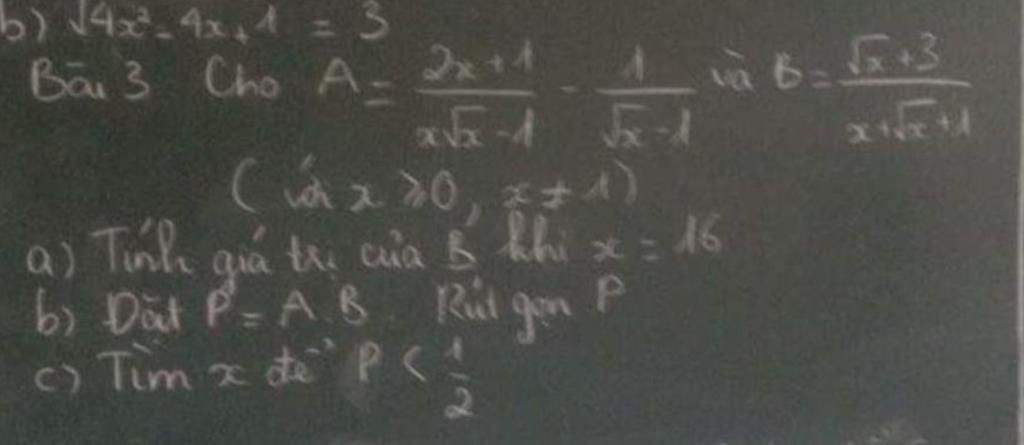 b) √4x² - 4x + 1 = 3
Bài 3 Cho A = (2x+1)/(x√x - 1) - 1/(√x - 1) và B = (√x + 3)/(x + √x + 1)
(với x ≥ 0, x ≠ 1)
a) Tính giá trị của B khi x = 16
b) Đặt P = A.B. Rút gọn P
c) Tìm x để P < 1/2